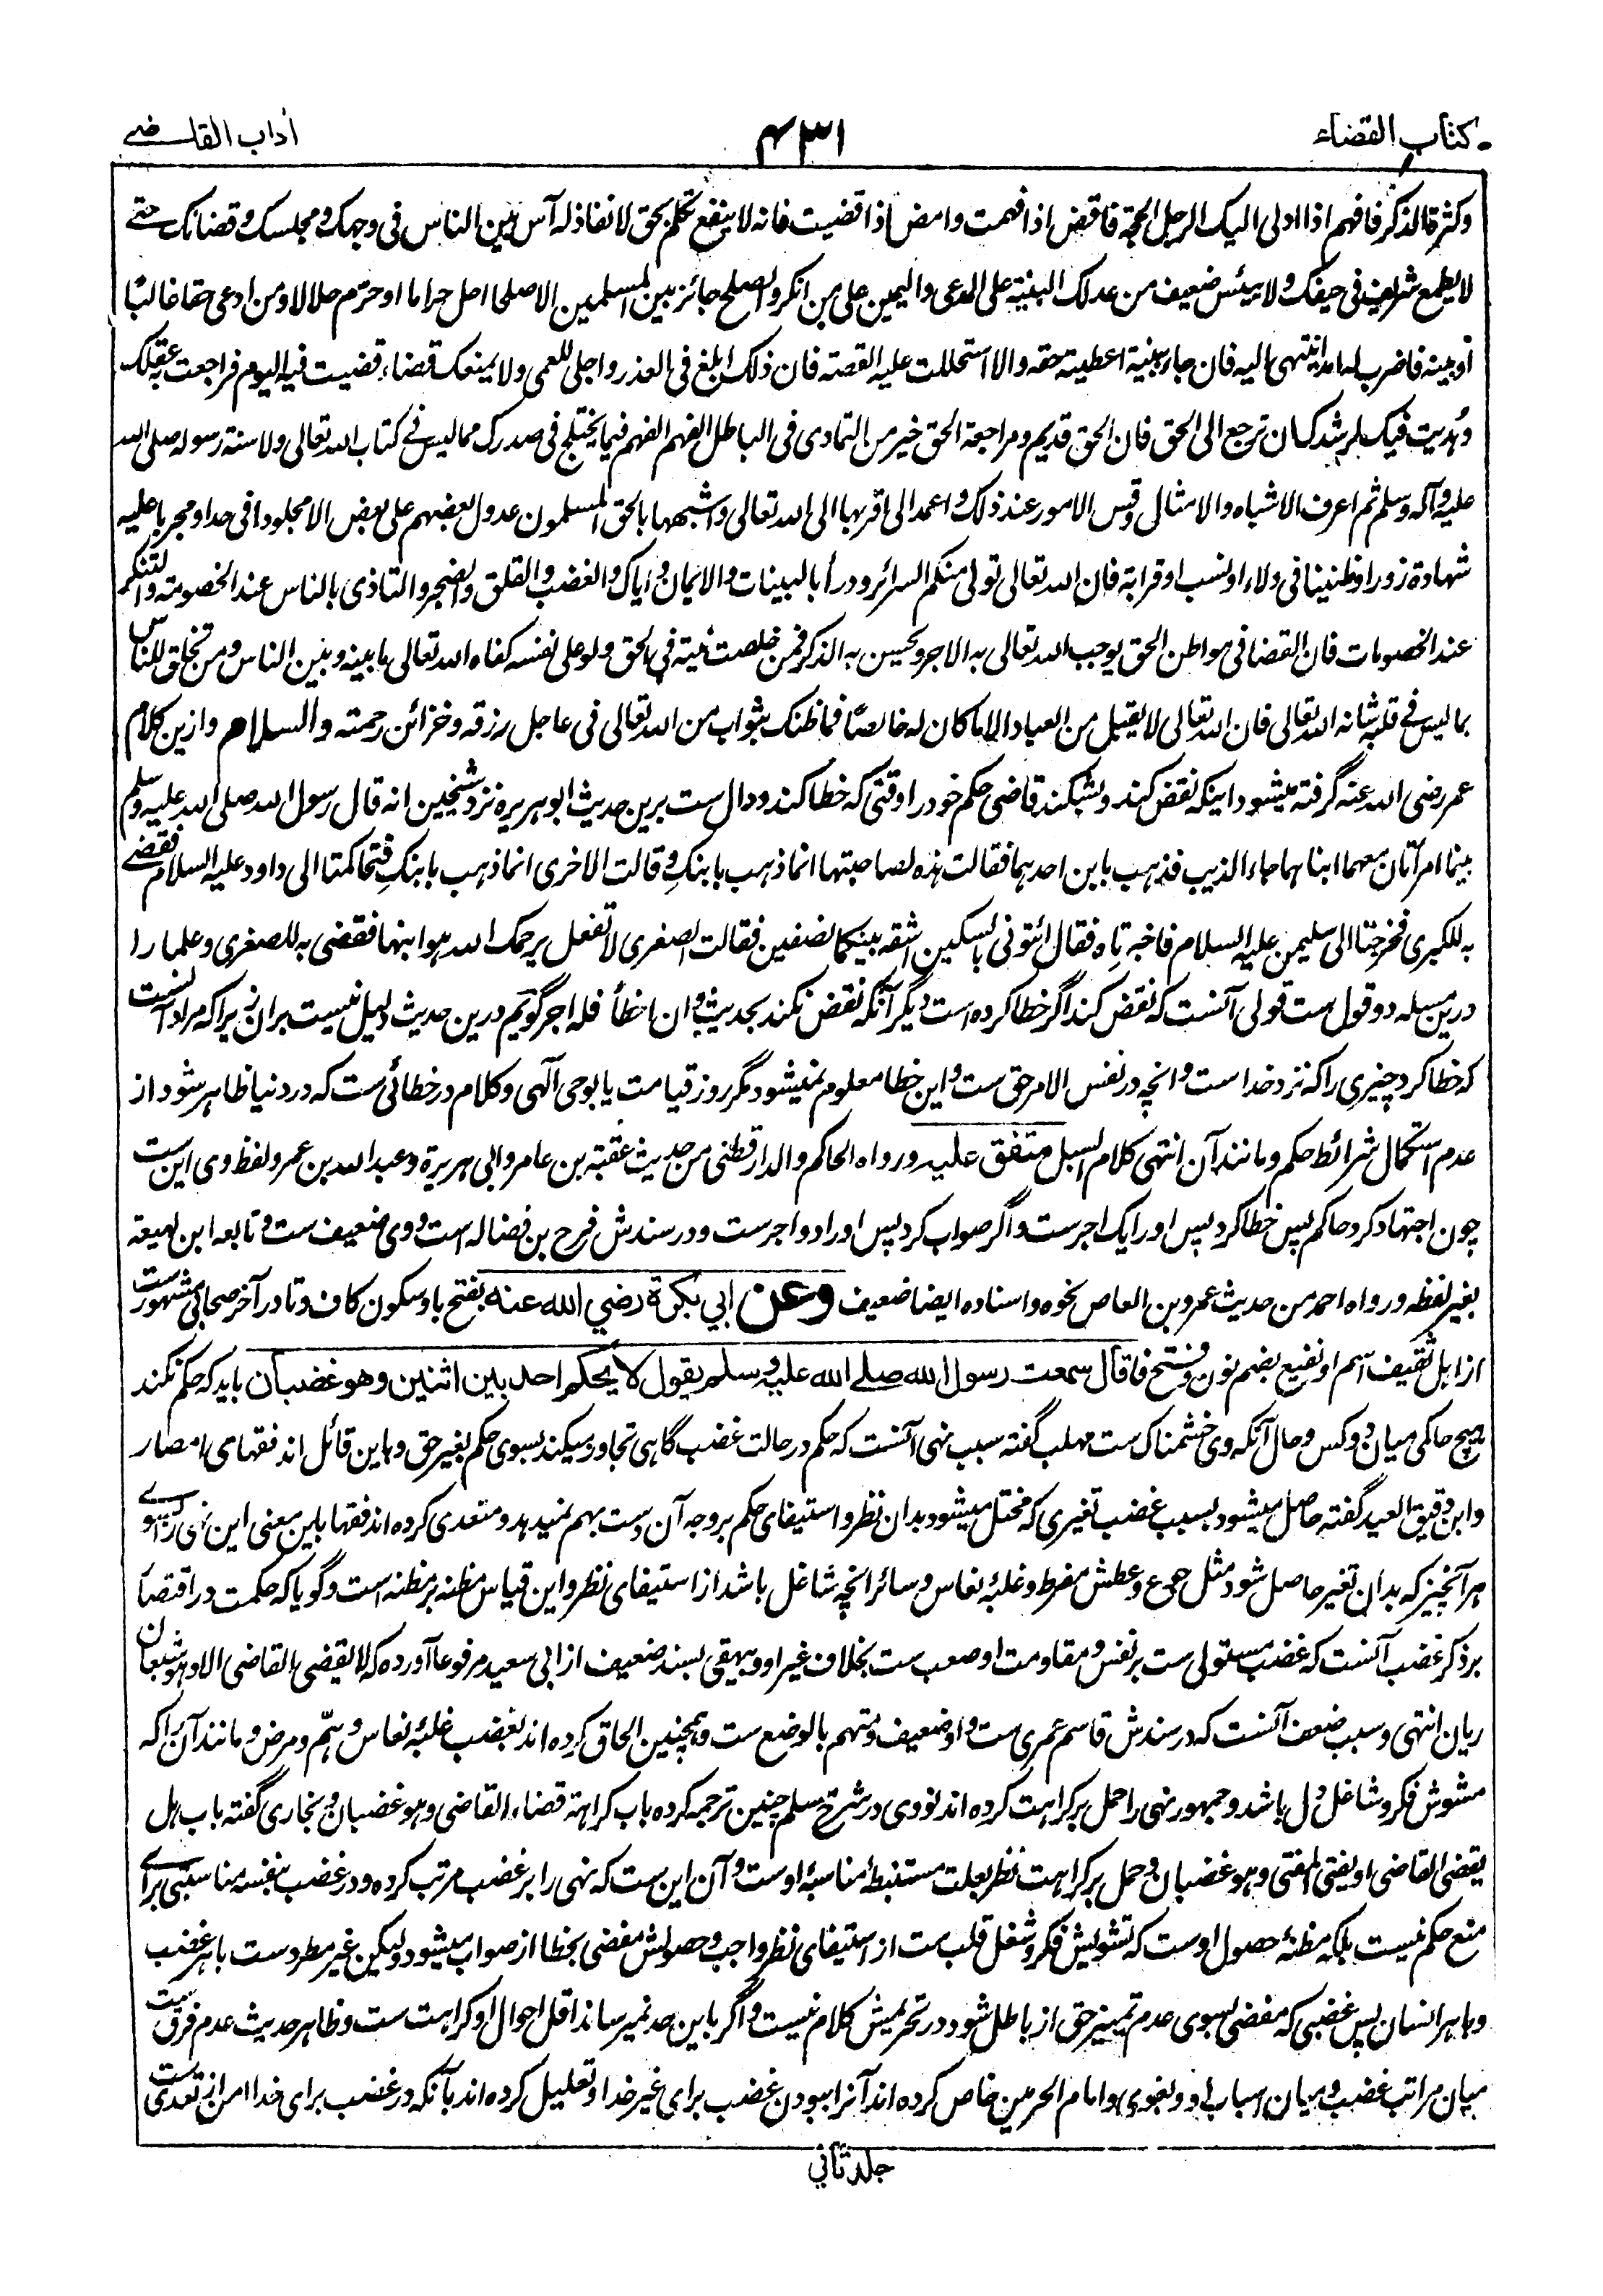 كتاب القضاء
۴۳۱
آداب القاضے
وكثرة الذكر فافهم اذا ادلى اليك الرجل الحجة فاقض اذا فهمت وامض اذا قضيت فانه لا ينفع تكلم بحق لا نفاذ له آس بين الناس فى وجهك ومجلسك وقضائك حتے
لا يطمع شريف فى حيفك ولا ييئس ضعيف من عدلك البينة على المدعى واليمين على من انكر والصلح جائز بين المسلمين الا صلحا احل حراما او حرّم حلالا ومن ادعى حقا غائبًا
او بينه فاضرب له امدا ينتهى اليه فان جاء ببينة اعطيته حقه والا استحللت عليه القصة فان ذلك ابلغ فى العذر واجلى للعمى ولا يمنعك قضاء قضيت فيه اليوم فراجعت به عقلك
وهُديت فيك لرشدك ان ترجع الى الحق فان الحق قديم ومراجعة الحق خير من التمادى فى الباطل الفهم الفهم فيما يختلج فى صدرك مما ليس فے كتاب الله تعالى ولا سنة رسوله صلى الله
عليه وآله وسلم ثم اعرف الاشباه والامثال وقس الامور عند ذلك واعمد الى اقربها الى الله تعالى واشبهها بالحق المسلمون عدول بعضهم على بعض الا مجلودا فى حد او مجربا عليه
شهادة زور او ظنينا فى ولاء او نسب او قرابة فان الله تعالى تولى منكم السرائر ودرأ بالبينات والايمان واياك والغضب والقلق والضجر والتاذى بالناس عند الخصومة والتنكر
عند الخصومات فان القضا فى مواطن الحق يوجب الله تعالى به الاجر ويحسن به الذكر فمن خلصت نيته فى الحق ولو على نفسه كفاه الله تعالى ما بينه وبين الناس ومن تخلق للناس
بما ليس فے قلبه شانه الله تعالى فان الله تعالى لا يقبل من العباد الا ما كان له خالصًا فما ظنك بثواب من الله تعالى فى عاجل رزقه وخزائن رحمته والسلام وازین کلام
عمر رضی الله عنه گرفته میشود اینکه نقض کند وبشکند قاضی حکم خود را وقتی که خطا کند ودال ست برین حدیث ابوهریره نزد شیخین انه قال رسول الله صلى الله عليه وسلم
بينما امرأتان معهما ابناهما جاء الذيب فذهب بابن احدهما فقالت هذه لصاحبتها انما ذهب بابنكِ وقالت الاخرى انما ذهب بابنكِ فتحاكمتا الى داود عليه السلام فقضے
به للكبرى فخرجتا الى سليمن عليه السلام فاخبرتاه فقال ائتونى بالسكين اشقه بينكما نصفين فقالت الصغرى لا تفعل يرحمك الله هو ابنها فقضى به للصغرى وعلما را
درین مسله دو قول ست قولی آنست که نقض کند اگر خطا کرده است دیگر آنکه نقض نکند بحدیث وان اخطأ فله اجر گویم درین حدیث دلیل نیست بران زیراکه مراد آنست
که خطا کرد چیزی را که نزد خداست وانچه در نفس الامر حق ست واین خطا معلوم نمیشود مگر روز قیامت یا بوحی آلهی وکلام در خطائی ست که در دنیا ظاهر شود از
عدم استکمال شرائط حکم ومانند آن انتهی کلام السبل متفق عليه ورواه الحاكم والدارقطنى من حديث عقبة بن عامر وابى هريرة وعبد الله بن عمر ولفظ وی این ست
چون اجتهاد کرد حاکم پس خطا کرد پس او را یک اجرست واگر صواب کرد پس او را دو اجرست ودر سندش فرح بن فضاله است و وی ضعیف ست وتابعه ابن لهيعة
بغير لفظه ورواه احمد من حديث عمرو بن العاص نحوه واسناده ايضا ضعيف وعن ابي بكرة رضي الله عنه بفتح با وسکون کاف وتا در آخر صحابی مشهورست
از اهل ثقیف اسم او نفیع بضم نون وفتح فا قال سمعت رسول الله صلے الله عليه وسلم يقول لا يحكم احد بين اثنين وهو غضبان باید که حکم نکند
هیچ حاکمی میان دو کس وحال آنکه وی خشمناک ست مهلب گفته سبب نهی آنست که حکم در حالت غضب گاهی تجاوز میکند بسوی حکم بغیر حق وباین قائل اند فقهای امصار
وابن دقیق العید گفته حاصل میشود بسبب غضب تغیری که مختل میشود بدان نظر واستیفای حکم بر وجه آن دست بهم نمیدهد ومتعدی کرده اند فقها باین معنی این نهی را بسوے
هر آنچیز که بدان تغیر حاصل شود مثل جوع وعطش مفرط وغلبهٔ نعاس وسائر انچه شاغل باشد از استیفای نظر واین قیاس مظنه بر مظنه است وگویا که حکمت در اقتصار
بر ذکر غضب آنست که غضب مستولی ست بر نفس ومقاومت او صعب ست بخلاف غیر او وبیهقی بسند ضعیف از ابی سعید مرفوعا آورده که لا يقضى القاضى الا وهو شبعان
ريان انتهی وسبب ضعف آنست که در سندش قاسم عمری ست واو ضعیف ومتهم بالوضع ست وهمچنین الحاق کرده اند بغضب غلبهٔ نعاس وهمّ ومرض ومانند آن را که
مشوش فکر وشاغل دل باشد وجمهور نهی را حمل بر کراهت کرده اند نووی در شرح مسلم چنین ترجمه کرده باب كراهة قضاء القاضى وهو غضبان وبخاری گفته باب هل
يقضى القاضى او يفتى المفتى وهو غضبان وحمل بر کراهت نظر بعلت مستنبطهٔ مناسبهٔ اوست وآن این ست که نهی را بر غضب مرتب کرده ودر غضب بنفسه مناسبتی براے
منع حکم نیست بلکه مظنهٔ حصول اوست که تشویش فکر وشغل قلب ست از استیفای نظر واجب وحصولش مفضی بخطا از صواب میشود ولیکن غیر مطردست با هر غضب
وبا هر انسان پس غضبی که مفضی بسوی عدم تمییز حق از باطل شود در تحریمش کلام نیست واگر باین حد نمیرساند اقل احوال او کراهت ست وظاهر حدیث عدم فرق ست
میان مراتب غضب ومیان اسباب او وبغوی وامام الحرمین خاص کرده اند آنرا ببودن غضب برای غیر خدا وتعلیل کرده اند بآنکه در غضب برای خدا امن از تعدی ست
جلد ثاني